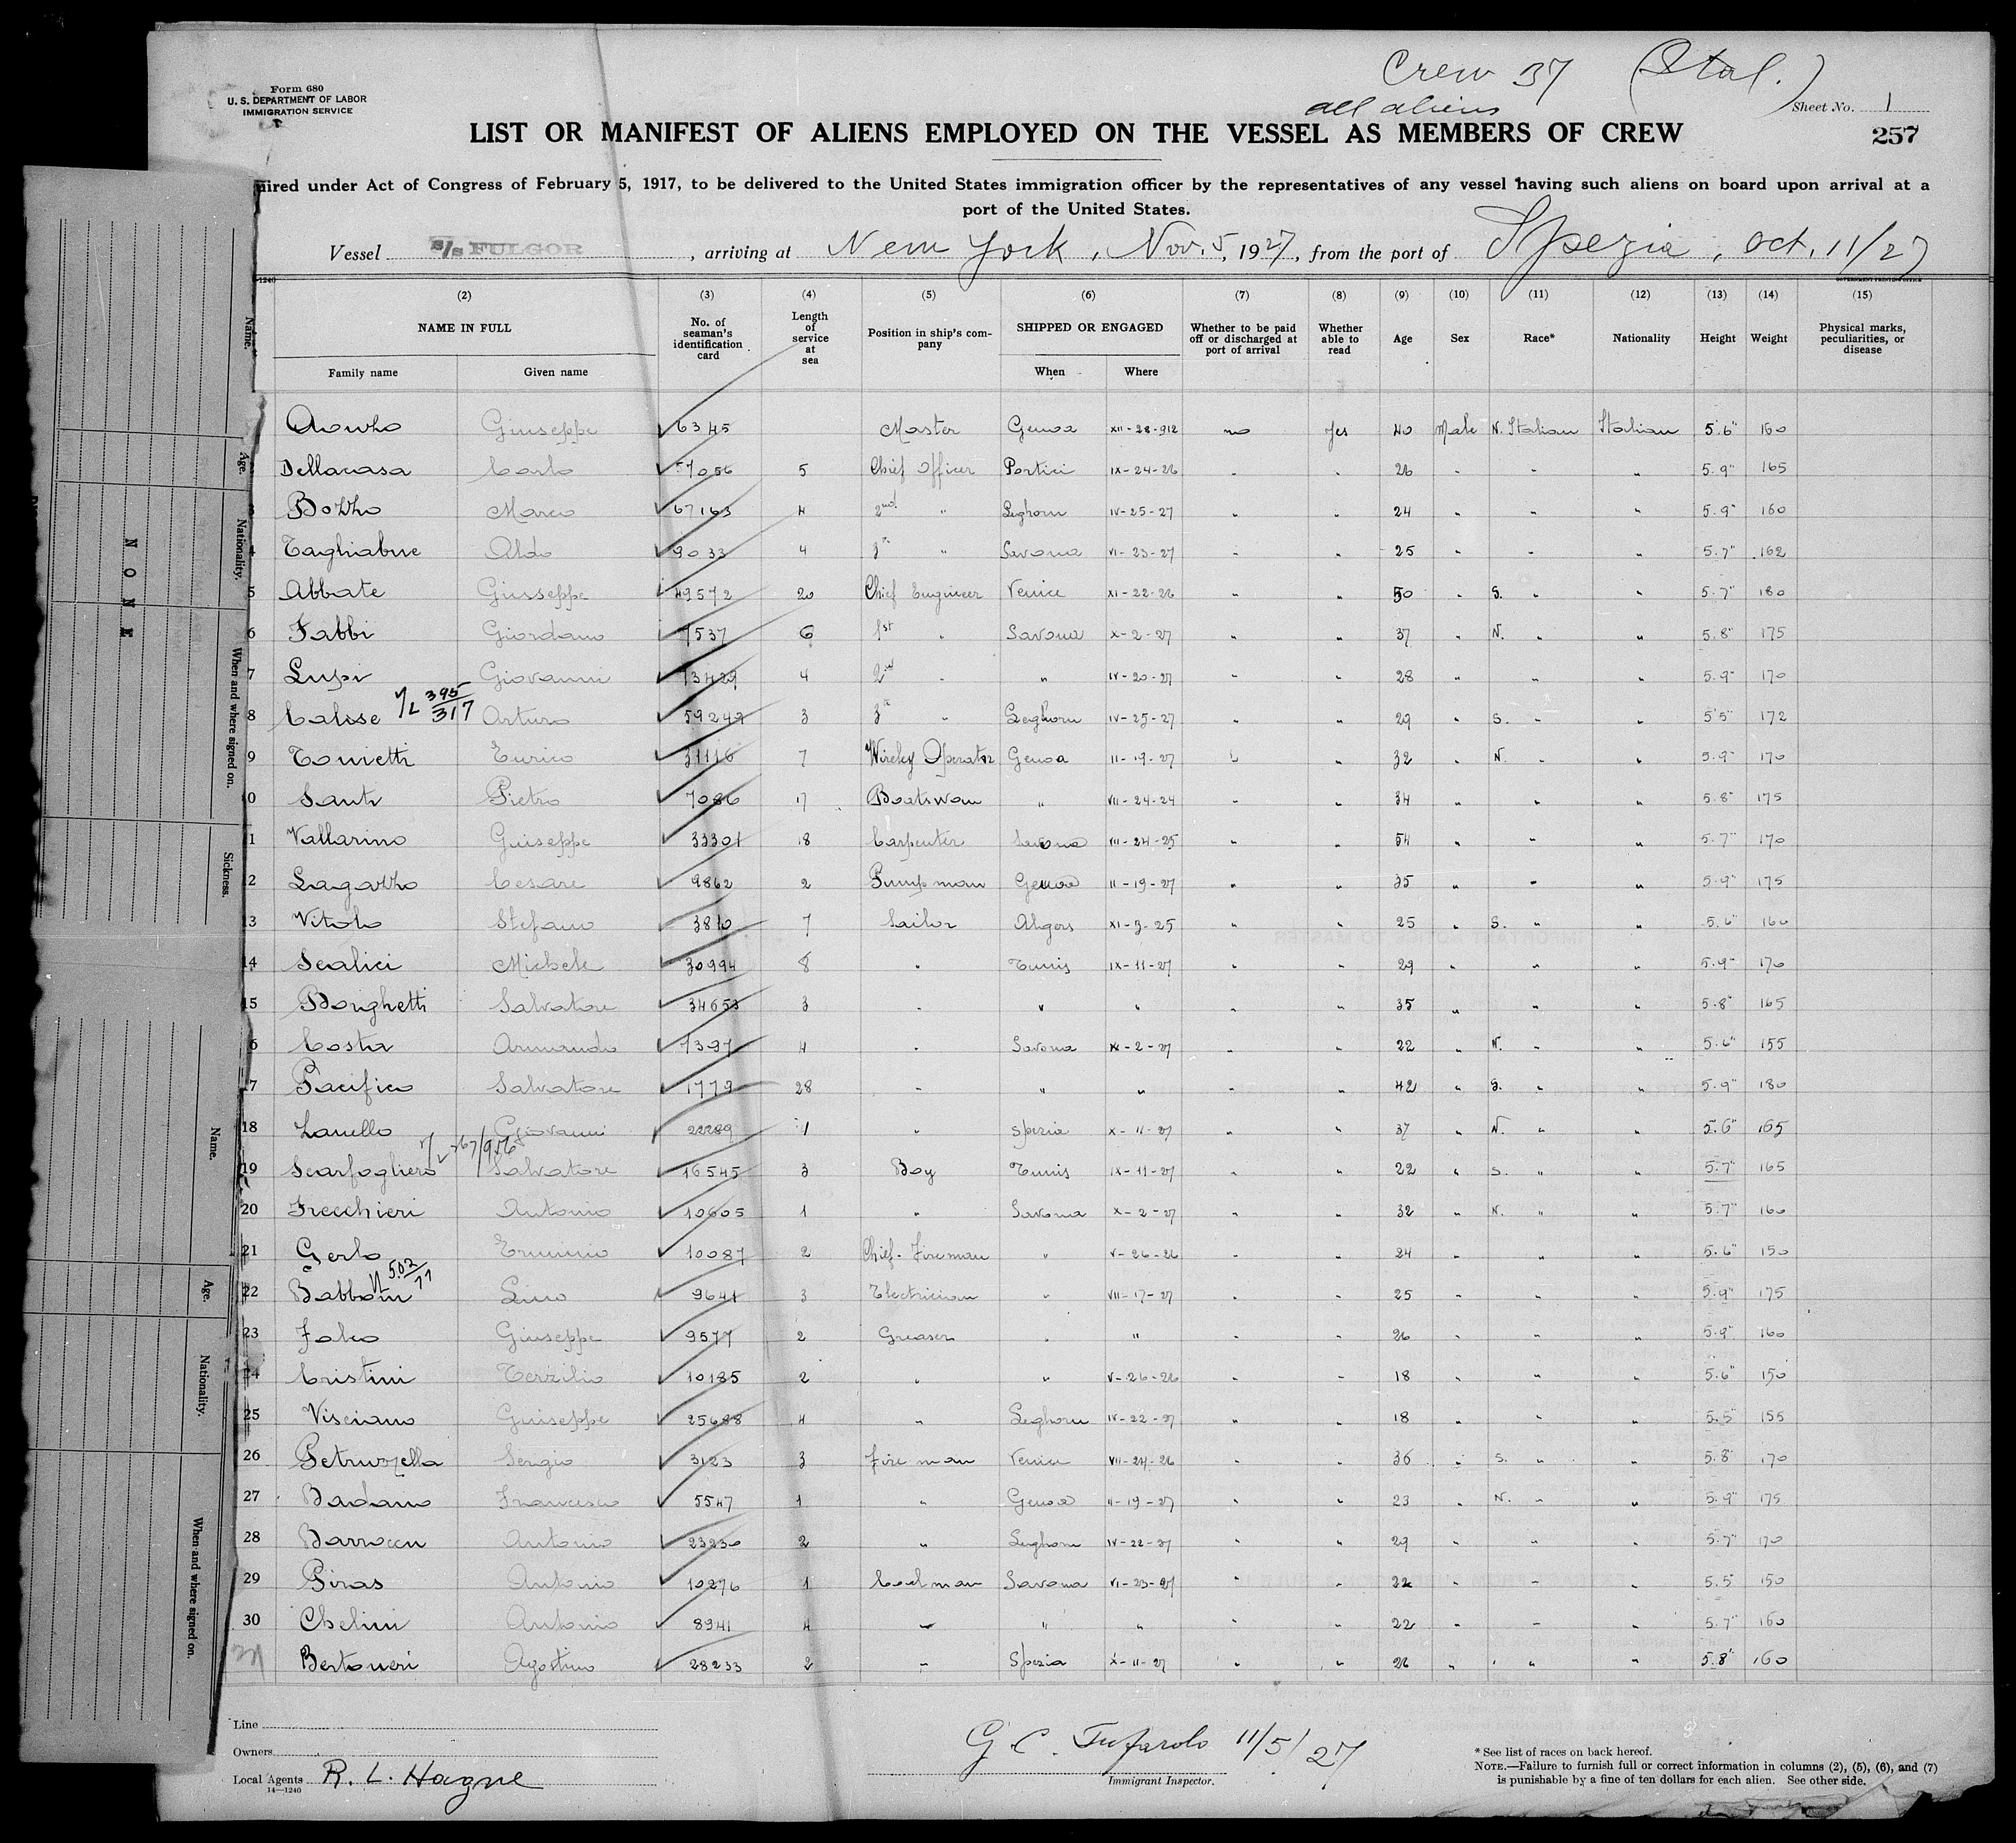 Crew 37 (Ital.)
all aliens
Form 680
U. S. DEPARTMENT OF LABOR
IMMIGRATION SERVICE
Sheet No. 1
LIST OR MANIFEST OF ALIENS EMPLOYED ON THE VESSEL AS MEMBERS OF CREW
257
uired under Act of Congress of February 5, 1917, to be delivered to the United States immigration officer by the representatives of any vessel having such aliens on board upon arrival at a
port of the United States.
Vessel S/S FULGOR, arriving at New York, Nov. 5, 1927, from the port of Spezia, Oct. 11/27
(2) (3) (4) (5) (6) (7) (8) (9) (10) (11) (12) (13) (14) (15)
NAME IN FULL No. of seaman's identification card Length of service at sea Position in ship's company SHIPPED OR ENGAGED Whether to be paid off or discharged at port of arrival Whether able to read Age Sex Race* Nationality Height Weight Physical marks, peculiarities, or disease
Family name Given name When Where
Giuseppe 6345 Master Genoa XII-28-912 no yes 40 Male N. Italian Italian 5.6" 160
Dellacasa Carlo 57056 5 Chief Officer Portici IX-24-26 " " 26 " " " 5.9" 165
3 Bozzo Marco 67163 4 2nd " Leghorn IV-25-27 " " 24 " " " 5.9" 160
4 Tagliabue Aldo 9033 4 3rd " Savona VI-23-27 " " 25 " " " 5.7" 162
5 Abbate Giuseppe 49572 20 Chief Engineer Venice XI-22-26 " " 50 " S. " " 5.7" 180
6 Fabbi Giordano 7537 6 1st " Savona X-2-27 " " 37 " N. " " 5.8" 175
7 Lupi Giovanni 73429 4 2nd " " IV-20-27 " " 28 " " " 5.9" 170
395/317
8 Calise Arturo 59249 3 3rd " Leghorn IV-25-27 " " 29 " S. " " 5.5" 172
9 Tonietti Enrico 31116 7 Wireless Operator Genoa II-19-27 " 32 " N. " " 5.9" 170
0 Santi Pietro 7086 17 Boatswan " VII-24-24 " " 34 " " " 5.8" 175
1 Vallarino Giuseppe 33301 18 Carpenter Savona VII-24-25 " " 54 " " 5.7" 170
2 Lagazzo Cesare 9862 2 Pumpman Genoa II-19-27 " " 35 " " " 5.9" 175
13 Vitolo Stefano 3810 7 Sailor Algers XI-3-25 " " 25 " S. " " 5.6" 160
14 Scalici Michele 30994 8 " Tunis IX-11-27 " " 29 " " " 5.9" 170
15 Borghetti Salvatore 34653 3 " " " " " 35 " " " 5.8" 165
6 Costa Armando 7397 4 " Savona X-2-27 " " 22 " N. " " 5.6" 155
17 Pacifico Salvatore 1779 28 " " " " " 42 " S. " " 5.9" 180
18 Zanello Giovanni 22289 1 " Spezia X-11-27 " " 37 " N. " " 5.6" 165
19 Scarfogliero Salvatore 16545 3 Boy Tunis IX-11-27 " " 22 " S. " " 5.7" 165
20 Frecchieri Antonio 10605 1 " Savona X-2-27 " " 32 " N. " " 5.7" 160
21 Gerlo Erminio 10087 2 Chief-Fireman " V-26-26 " " 24 " " " 5.6" 150
502/77
22 Babboni Lino 9641 3 Electrician " VII-17-27 " " 25 " " " 5.9" 175
23 Falco Giuseppe 9577 2 Greaser " " " " 26 " " " 5.9" 160
24 Cristini Terzilio 10185 2 " " V-26-26 " " 18 " " " 5.6" 150
25 Visciano Giuseppe 25688 4 " Leghorn IV-22-27 " " 18 " " " 5.5" 155
26 Petruzzella Sergio 3123 3 Fireman Venice VII-24-26 " " 36 " S. " " 5.8" 170
27 Badano Francesco 5547 1 " Genoa II-19-27 " " 23 " N. " " 5.9" 175
28 Barroccu Antonio 23230 2 " Leghorn IV-22-27 " " 29 " " " 5.7" 170
29 Piras Antonio 10276 1 Coalman Savona VI-23-27 " 22 " " " 5.5" 150
30 Chelini Antonio 8941 4 " " " " " 22 " " " 5.7" 160
31 Bertoneri Agostino 28233 2 " Spezia X-11-27 " " 26 " " " 5.8" 160
Line
Owners
Local Agents R. L. Hague
14—1240
G. C. Tufarolo 11/5/27
Immigrant Inspector.
* See list of races on back hereof.
NOTE.—Failure to furnish full or correct information in columns (2), (5), (6), and (7)
is punishable by a fine of ten dollars for each alien. See other side.
Name.
Age.
Nationality.
When and where signed on.
Sickness.
NONE
Name.
Age.
Nationality.
When and where signed on.